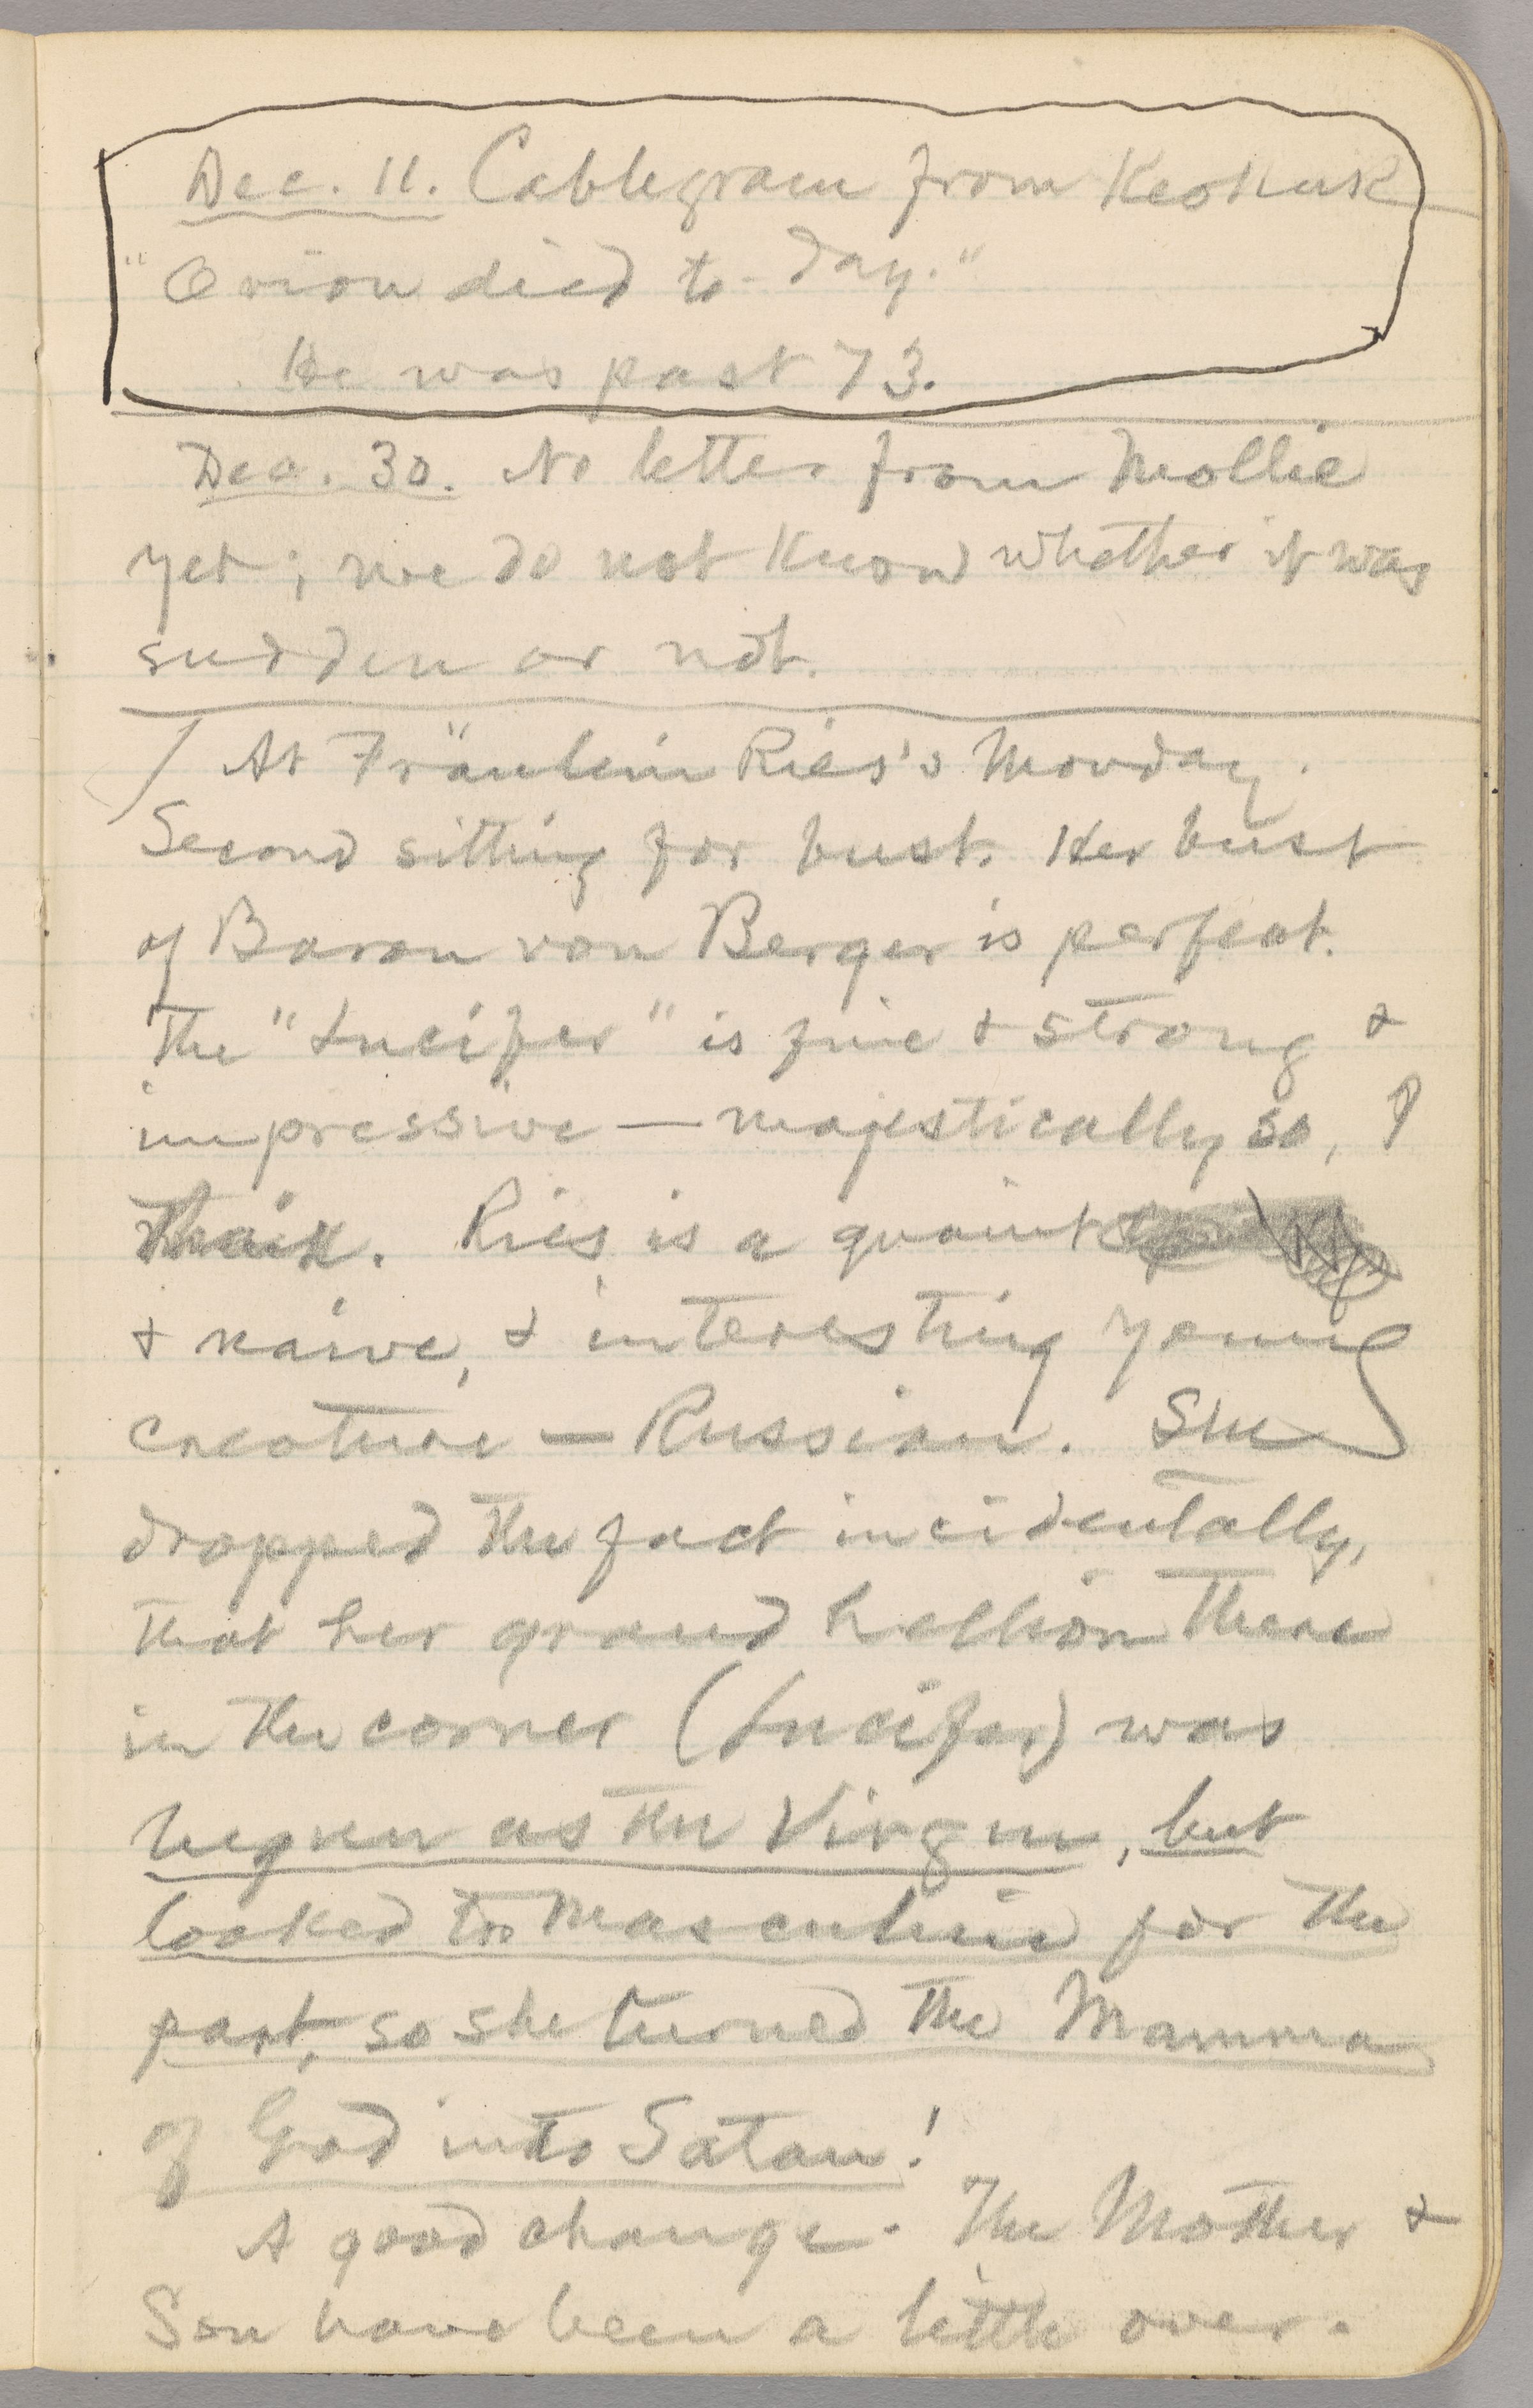 Dec. 11. Cablegram from Keokuk
"Orion died to-day."
He was past 73.
Dec. 30. No letter from Mollie
yet; we do not know whether it was
sudden or not.
At Fräulein Ries's Monday.
Second sitting for bust. Her bust
of Baron von Berger is perfect.
The "Lucifer" is fine & strong &
impressive — majestically so, I
think. Ries is a quaint
& naive, & interesting young
creature — Russian. She
dropped the fact incidentally,
that her grand hellion there
in the corner (Lucifer) was
begun as the Virgin, but
looked too masculine for the
part, so she turned the Mamma
of God into Satan!
A good change. The Mother &
Son have been a little over-